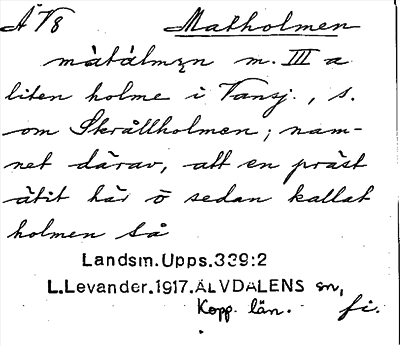 Å V8 Matholmen
måtålmęn m. III a
liten holme i Vansj., s.
om Skrållholmen; nam-
net därav, att en präst
ätit här o sedan kallat
holmen så
Landsm. Upps. 339:2
L. Levander. 1917. ÄLVDALENS sn,
Kopp. län. fi.